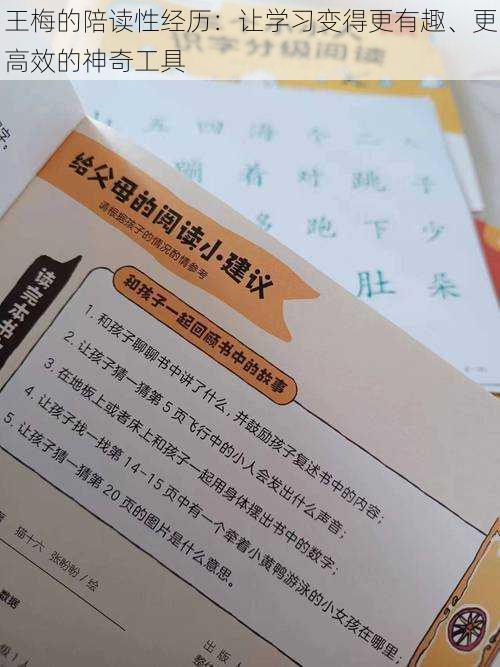 王梅的陪读性经历：让学习变得更有趣、更
高效的神奇工具
识字分级阅读
五 四 海 个 二 人
蹦 着 对 跳 子
多 跑 下 少
肚 朵
给父母的阅读小建议
请根据孩子的情况酌情参考
读完本书
和孩子一起回顾书中的故事
1. 和孩子聊聊书中讲了什么，并鼓励孩子复述书中的内容；
2. 让孩子猜一猜第 5 页飞行中的小人会发出什么声音；
3. 在地板上或者床上和孩子一起用身体摆出书中的数字；
4. 让孩子找一找第 14-15 页中有一个牵着小黄鸭游泳的小女孩在哪里；
5. 让孩子猜一猜第 20 页的图片是什么意思。
猫十六 张盼盼 / 绘
数据
出 版